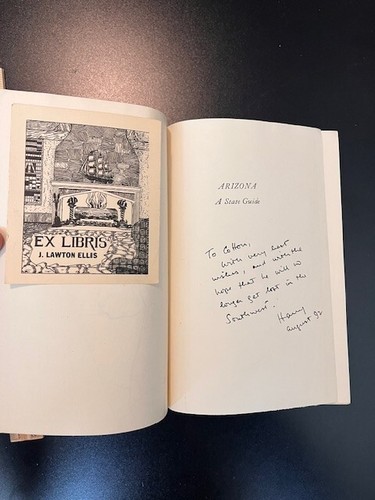 EX LIBRIS
J. LAWTON ELLIS
ARIZONA
A State Guide
To Cotton,
With very best
wishes, and with the
hope that he will no
longer get lost in the
Southwest.
Harry
August 92